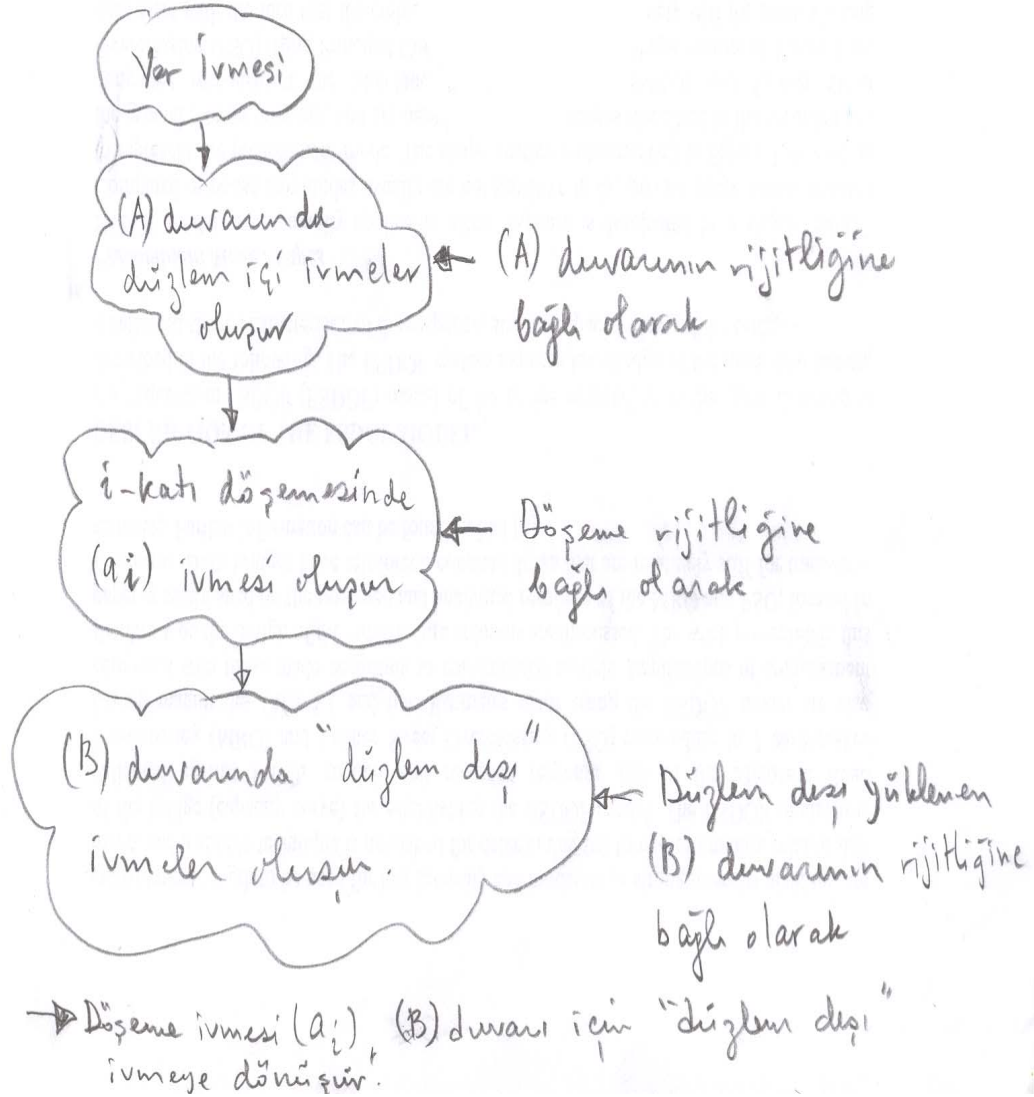 Yer İvmesi
(A) duvarında
düzlem içi ivmeler
oluşur
(A) duvarının rijitliğine
bağlı olarak
i-katı döşemesinde
(ai) ivmesi oluşur
Döşeme rijitliğine
bağlı olarak
(B) duvarında "düzlem dışı"
ivmeler oluşur.
Düzlem dışı yüklenen
(B) duvarının rijitliğine
bağlı olarak
Döşeme ivmesi (ai), (B) duvarı için "düzlem dışı"
ivmeye dönüşür.